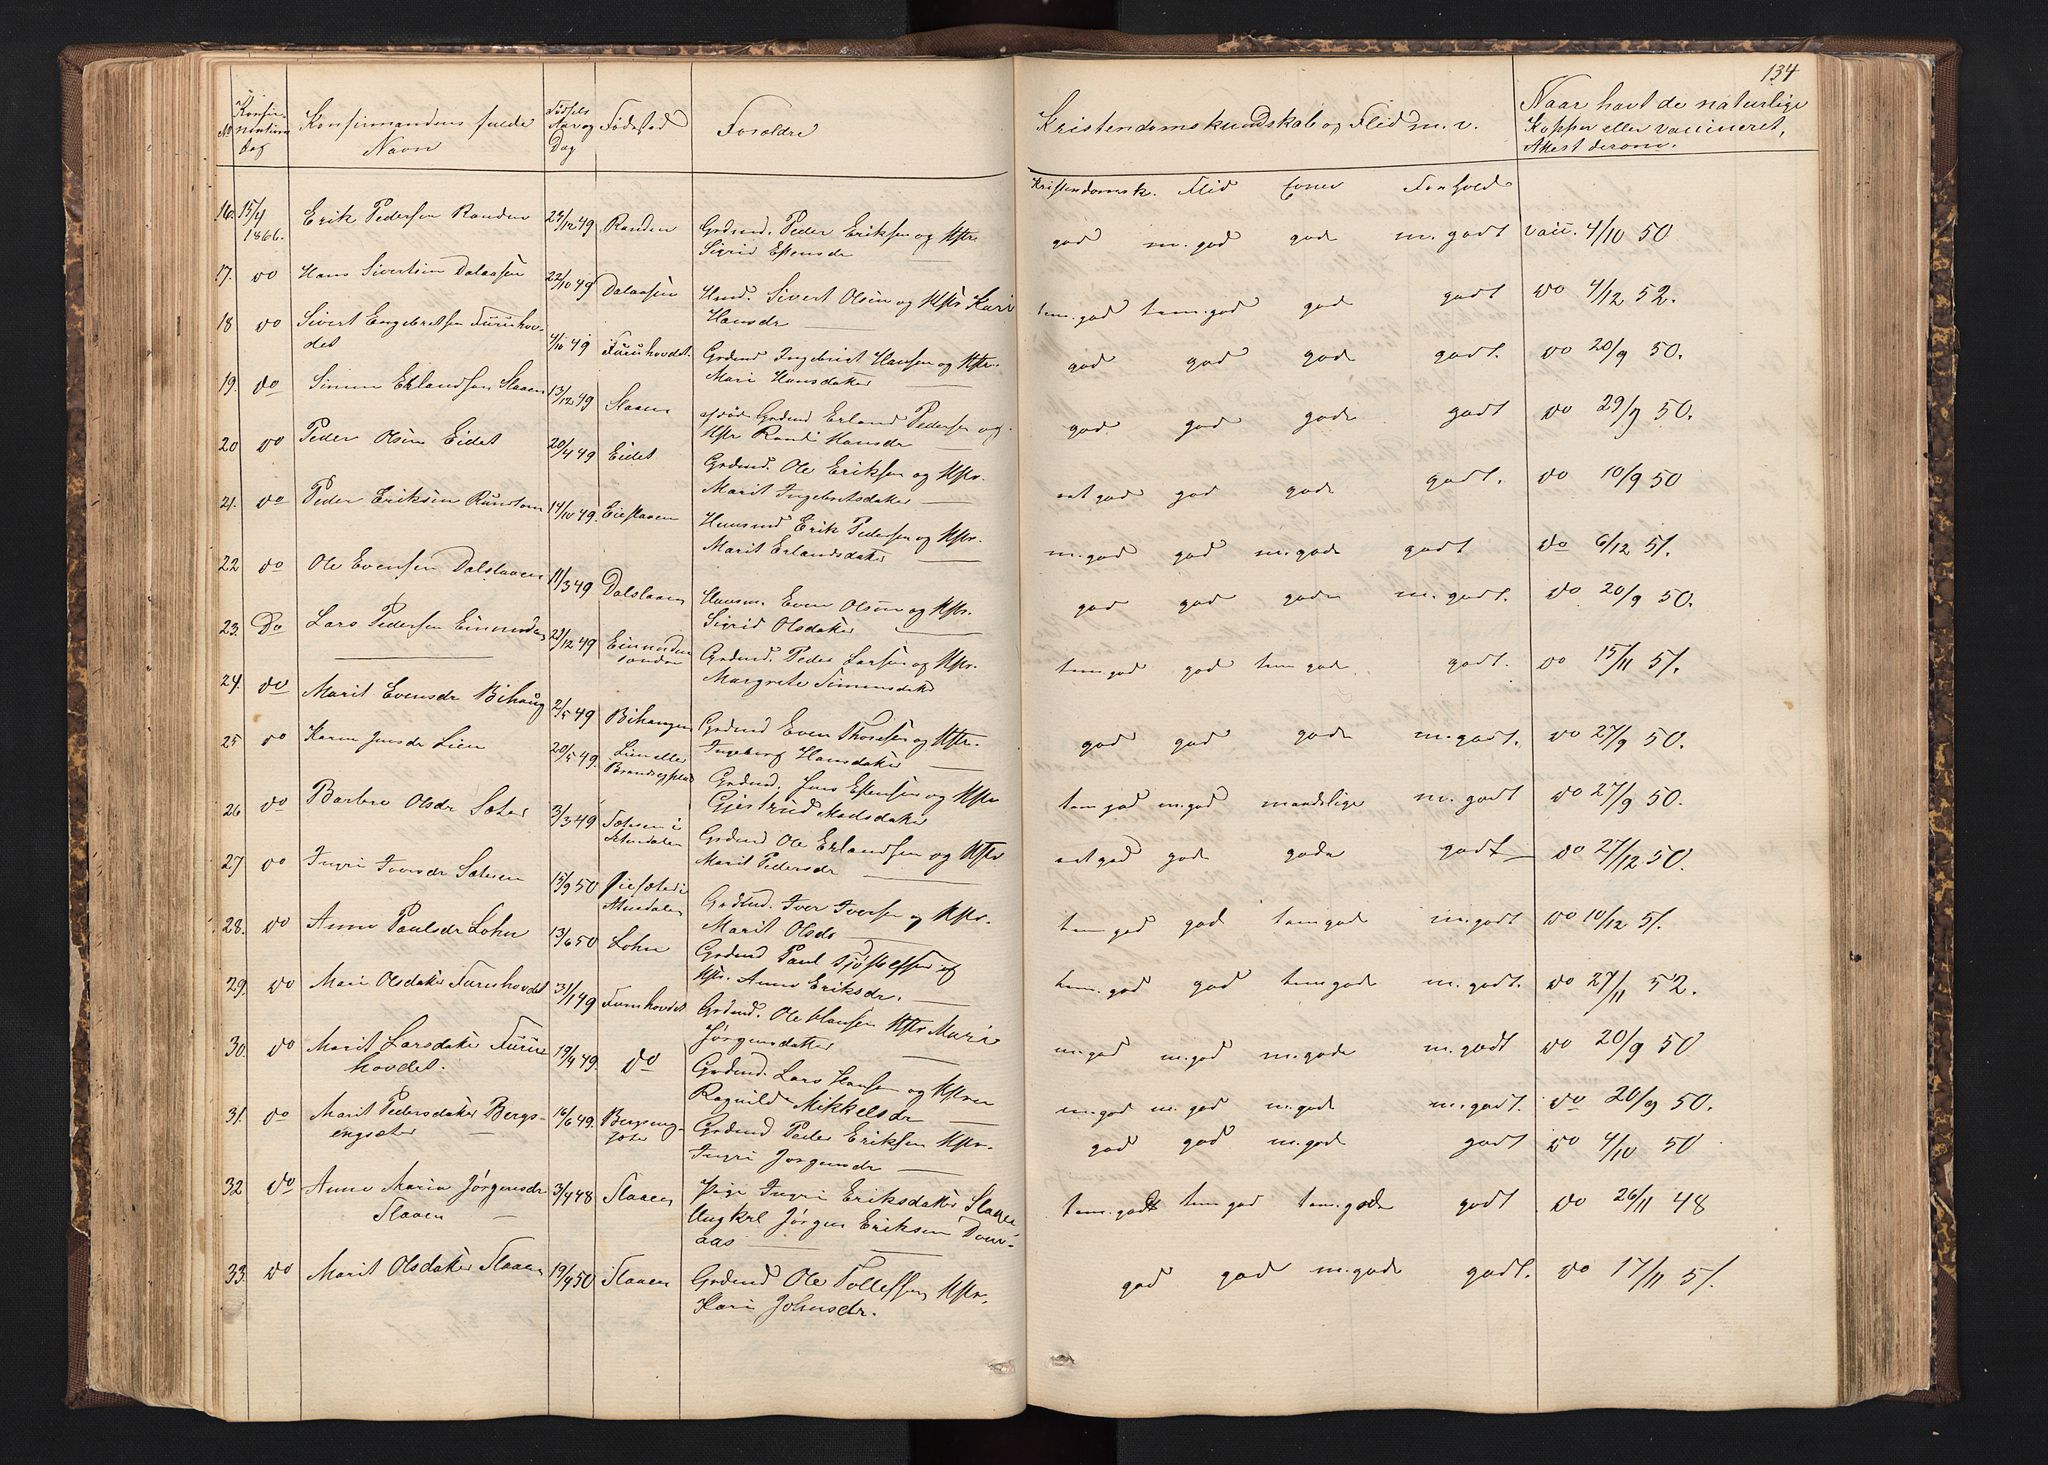 134
No Konfirmations dag
Konfirmandens fulde Navn
Fødsels Aar og Dag
Fødested
Forældre
Kristendomskundskab og Flid m. v.
Naar havt de naturlige
Kopper eller vaccineret,
Attest derom.
Kristendomsk. Flid Evner Forhold
16. 15/4 1866. Erik Pedersen Randen 24/12 49 Randen Grdmd. Peder Eriksen og Kstr.
Sigrid Estensdr
god m. god gode m. godt vacc. 4/10 50
17. do Hans Sivertsen Dalaasen 22/10 49 Dalaasen Husmd. Sivert Olsen og Kstr Kari
Hansdr
tem. god tem. god gode godt do 4/12 52.
18 do Sivert Engebretsen Furuhov-
det 4/10 49 Furuhovdet. Grdmd Ingebrigt Hansen og Kstr.
Mari Hansdatter
god god gode godt. do 20/9 50.
19. do Simen Erlandsen Slaaen 13/12 49 Slaaen afdøde Grdmd Erland Pedersen og
Kstr Randi Hansdr
god god gode godt do 29/9 50.
20 do Peder Olsen Eidet 20/4 49 Eidet Grdmd. Ole Eriksen og Kstr.
Marit Ingebretsdatter
ret god god gode godt. do 10/9 50
21. do Peder Eriksen Rundtom 14/10 49. Eieslaaen Huusmd Erik Pedersen og Kstr.
Marit Erlandsdatter
m. god god m. gode godt do 6/12 51.
22 do Ole Evensen Dalslaaen 11/3 49 Dalslaaen Huusm. Even Olsen og Kstr.
Sigrid Olsdatter
god god gode m. godt. do 20/9 50.
23. Do Lars Pedersen Einunda 29/12 49 Grdmd. Peder Larsen og Kstr.
Margrete Simensdatter
tem. god god tem gode godt. do 15/11 51.
24. do Marit Evensdr Bihaug 2/5 49 Bihaugen Grdmd Even Thoresen og Kstr.
Ingeborg Hansdatter
god god gode m. godt. do 27/9 50.
25 do Karen Jensdr Lien 20/5 49. Lien eller
Grdmd. Jens Estensen og Kstr
Gjertrud Madsdatter
tem god m. god maadelige m. godt do 27/9 50.
26 do Barbro Olsdr Sæter 3/3 49 Sæteren i
Atnedalen Grdmd Ole Erlandsen og Kstr
Marit Pedersdr
ret god gode gode godt do 27/12 50.
27 do Ingri Iversdr Sæteren 15/9 50
Atnedalen Grdmd. Iver Iversen og Kstr.
Marit Olsdr
tem god god tem gode m. godt do 10/12 51.
28. do Anne Paulsdr Lohn 13/6 50 Lohn Grdmd Paul Tjøstelsen og
Kstr. Anne Eriksdr.
tem. god god tem gode m. godt. do 27/11 52.
29. do Mari Olsdatter Furuhovdet 31/1 49 Furuhovdet Grdmd. Ole Hansen Kstr Mari
Jørgensdatter
m. god m. god m. gode m. godt do 20/9 50
30. do Marit Larsdatter Furu
hovdet. 19/4 49. do Grdmd. Lars Hansen og Kstren
Ragnild Mikkelsdr
m. god m. god m. gode m. godt. do 20/9 50.
31. do Marit Pedersdatter Bergs-
engsæter 16/6 49. Bergseng-
sæter Grdmd Peder Eriksen Kstr.
Ingri Jørgensdr
god god m. gode godt do 4/10 50
32 do Anne Maria Jørgensdr
Slaaen 3/4 48 Slaaen Pige Ingri Eriksdatter Slaaen
Ungkrl Jørgen Eriksen Dovr-
aas
tem. godt tem god tem. gode godt do 26/11 48
33. do Marit Olsdatter Slaaen 19/4 50 Slaaen Grdmd Ole Tollefsen Kstr.
Kari Johnsdr.
god god m. gode godt. do 17/11 51.